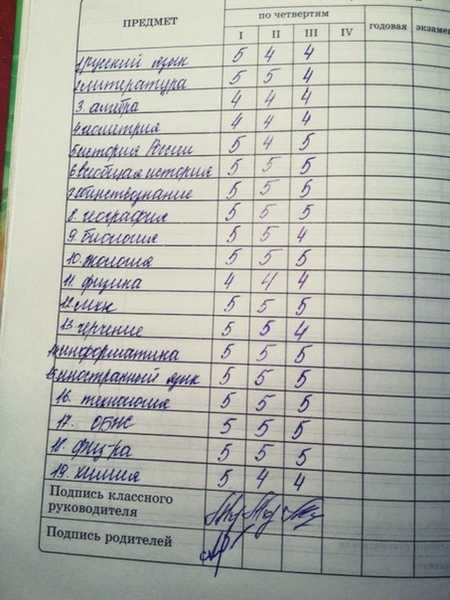 ПРЕДМЕТ по четвертям годовая экзамен
I II III IV
1 русский язык 5 4 4
2 литература 5 5 4
3. алгебра 4 4 4
4 геометрия 4 4 4
5 история России 5 4 5
6 всеобщая история 5 5 5
7 обществознание 5 5 5
8. география 5 5 5
9. биология 5 5 4
10. экология 5 5 5
11. физика 4 4 4
12. МХК 5 5 5
13 черчение 5 5 4
14 информатика 5 5 5
15 иностранный язык 5 5 5
16. технология 5 5 5
17. ОБЖ 5 5 5
18. физ-ра 5 5 5
19. химия 5 4 4
Подпись классного
руководителя
Подпись родителей